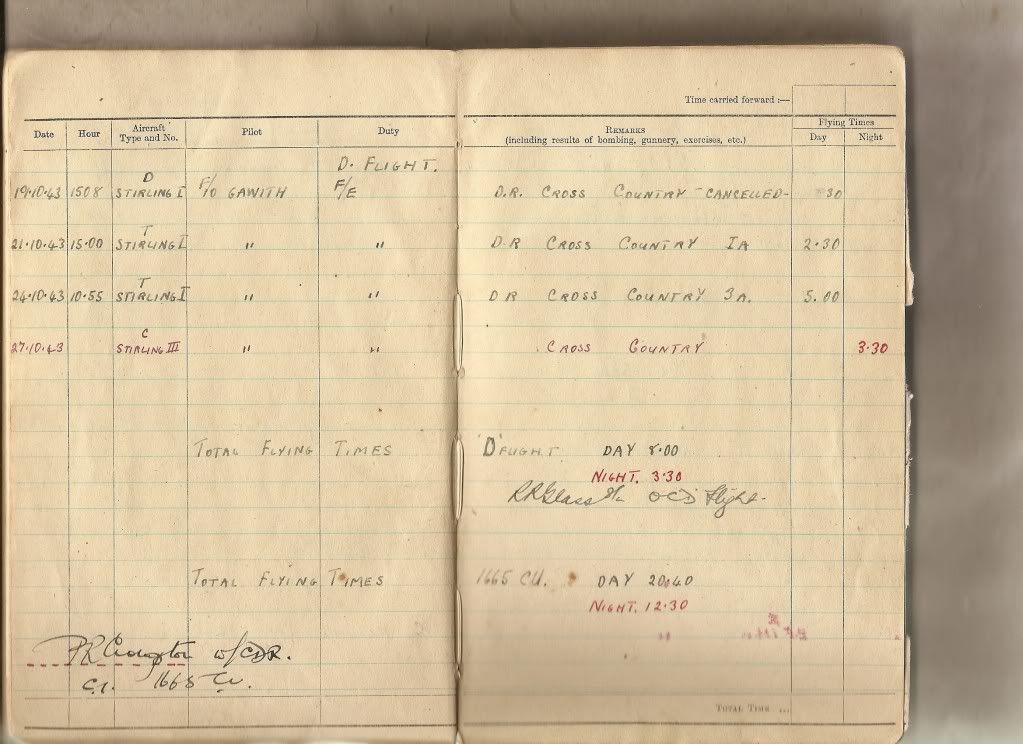 Time carried forward :—
Date Hour Aircraft Type and No. Pilot Duty REMARKS (including results of bombing, gunnery, exercises, etc.) Flying Times Day Night
D. FLIGHT.
19.10.43 1508 D STIRLING I F/O GAWITH F/E D.R. CROSS COUNTRY - CANCELLED - 30
21.10.43 15.00 T STIRLING I " " D.R CROSS COUNTRY IA 2.30
24.10.43 10.55 T STIRLING I " " D R CROSS COUNTRY 3A. 5.00
27.10.43 C STIRLING III " " CROSS COUNTRY 3.30
TOTAL FLYING TIMES 'D' FLIGHT. DAY 8.00
NIGHT. 3.30
RRGlass OC 'D' Flight.
TOTAL FLYING TIMES 1665 CU. DAY 20.40
NIGHT. 12.30
W/CDR.
C.I. 1665 Cu.
TOTAL TIME ...